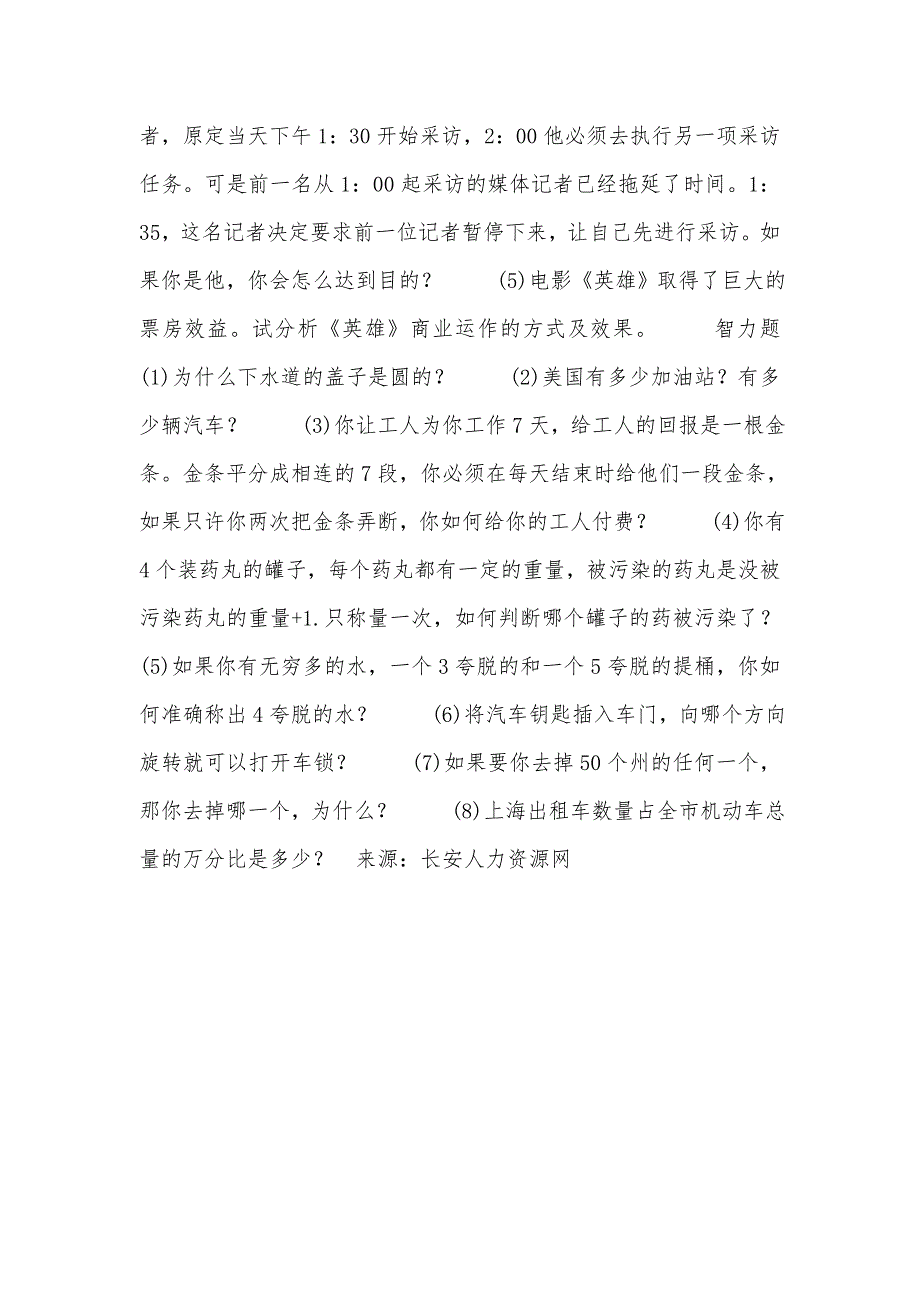 者，原定当天下午1：30开始采访，2：00他必须去执行另一项采访
任务。可是前一名从1：00起采访的媒体记者已经拖延了时间。1：
35，这名记者决定要求前一位记者暂停下来，让自己先进行采访。如
果你是他，你会怎么达到目的？　　(5)电影《英雄》取得了巨大的
票房效益。试分析《英雄》商业运作的方式及效果。　　智力题
(1)为什么下水道的盖子是圆的？　　(2)美国有多少加油站？有多
少辆汽车？　　(3)你让工人为你工作7天，给工人的回报是一根金
条。金条平分成相连的7段，你必须在每天结束时给他们一段金条，
如果只许你两次把金条弄断，你如何给你的工人付费？　　(4)你有
4个装药丸的罐子，每个药丸都有一定的重量，被污染的药丸是没被
污染药丸的重量+1.只称量一次，如何判断哪个罐子的药被污染了？
(5)如果你有无穷多的水，一个3夸脱的和一个5夸脱的提桶，你如
何准确称出4夸脱的水？　　(6)将汽车钥匙插入车门，向哪个方向
旋转就可以打开车锁？　　(7)如果要你去掉50个州的任何一个，
那你去掉哪一个，为什么？　　(8)上海出租车数量占全市机动车总
量的万分比是多少？　来源：长安人力资源网